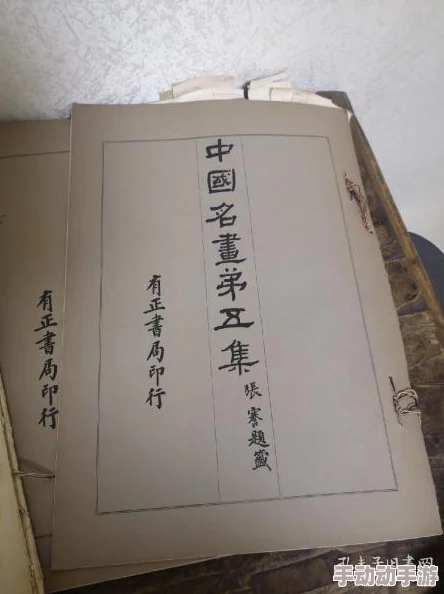 中國名畫第五集
張謇題籤
有正書局印行
有正書局印行
孔夫子旧书网
手动动手游